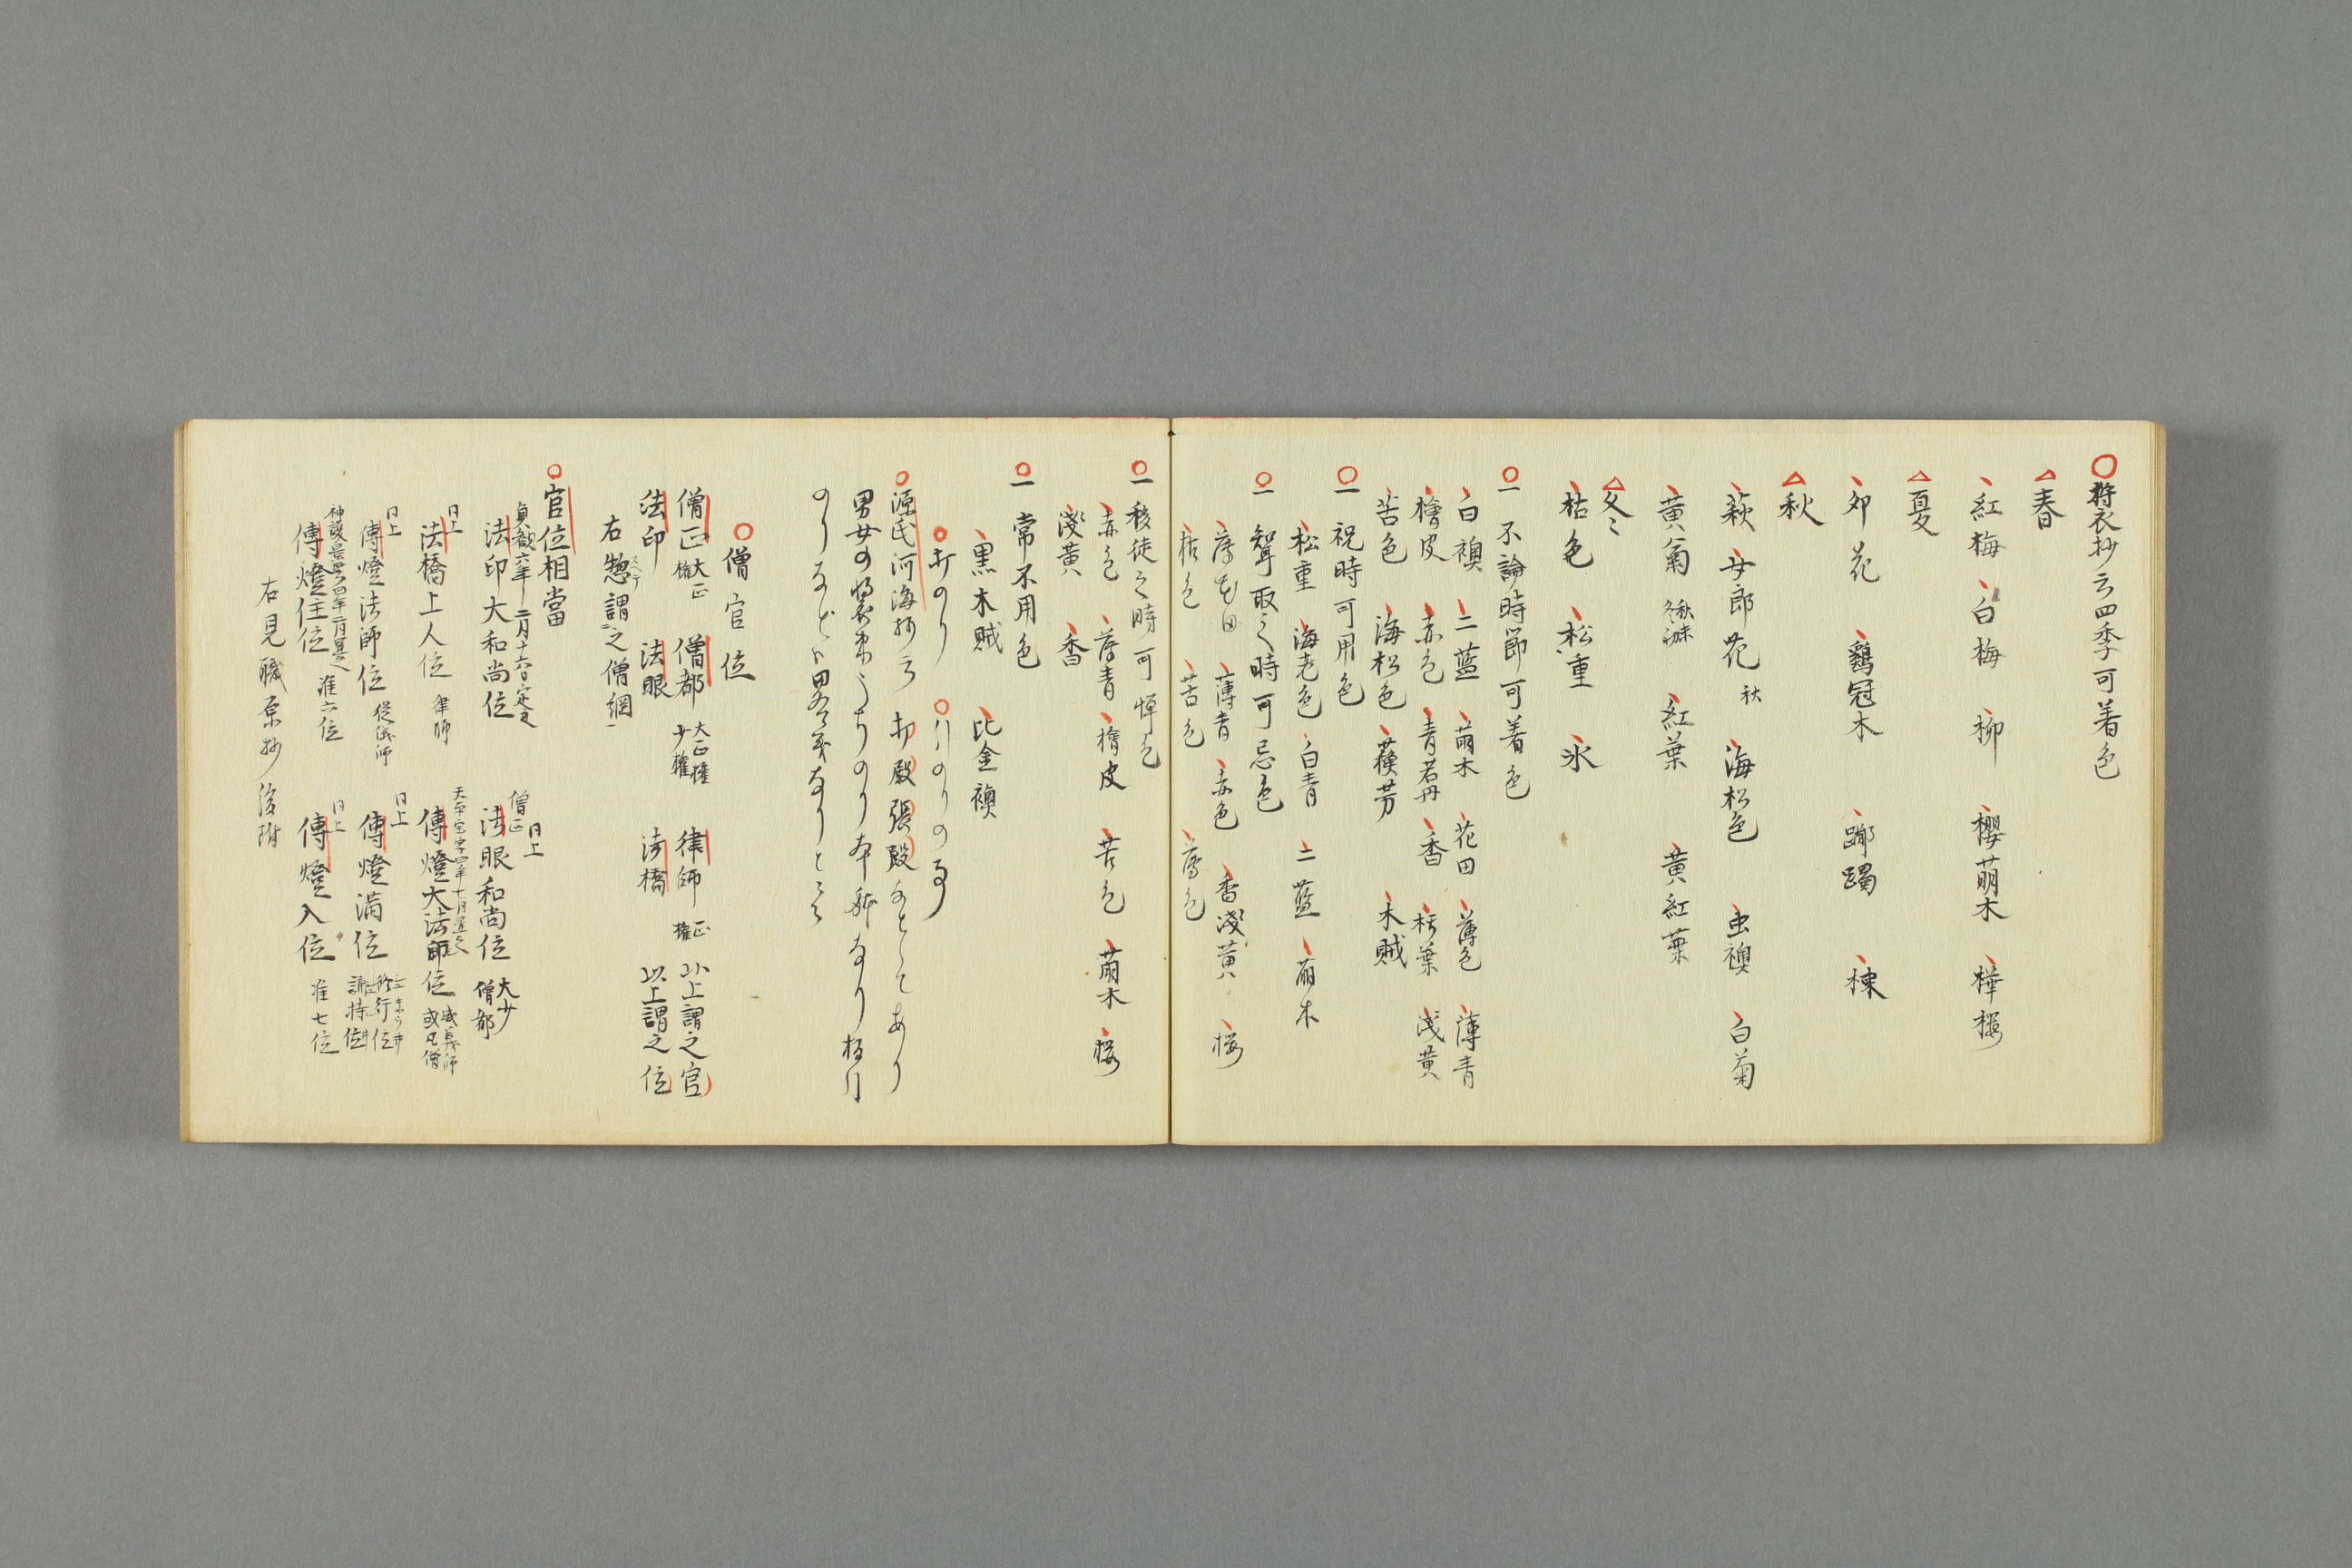 狩衣抄云四季可着色
春
紅梅 白梅 柳 櫻萠木 樺桜
夏
卯花 鷄冠木 躑躅 楝
秋
萩 女郎花 秋 海松色 虫襖 白菊
黄菊 紅葉 黄紅葉
冬
枯色 松重 氷
一 不論時節可着色
白襖 二藍 萠木 花田 薄色 薄青
檜皮 赤色 青若丹 香 朽葉 浅黄
苦色 海松色 蘓芳 木賊
一 祝時可用色
松重 海老色 白青 二藍 萠木
一 聟取之時可忌色
薄花田 薄青 赤色 香 淺黄 桜
枯色 苦色
一 移徒之時可憚色
赤色 薄青 檜皮 苦色 萠木 桜
淺黄 香
一 常不用色
黒木賊 比金襖
打のり 引のりの事
源氏河海抄云 打殿張殿
僧官位
僧正 大正權 僧都 大正權少權 律師 正權 以上謂之官
法印 法眼 法橋 以上謂之位
右惣謂之僧綱
官位相當
貞観六年二月十六日定之
法印大和尚位 僧正 同上 法眼和尚位 大少僧都
同上 法橋上人位 律師 傳燈大法師位 威儀師或凡僧
同上 傳燈法師位 從儀師 同上 傳燈満位
傳燈住位 准六位 同上 傳燈入位 准七位
右見職原抄後附